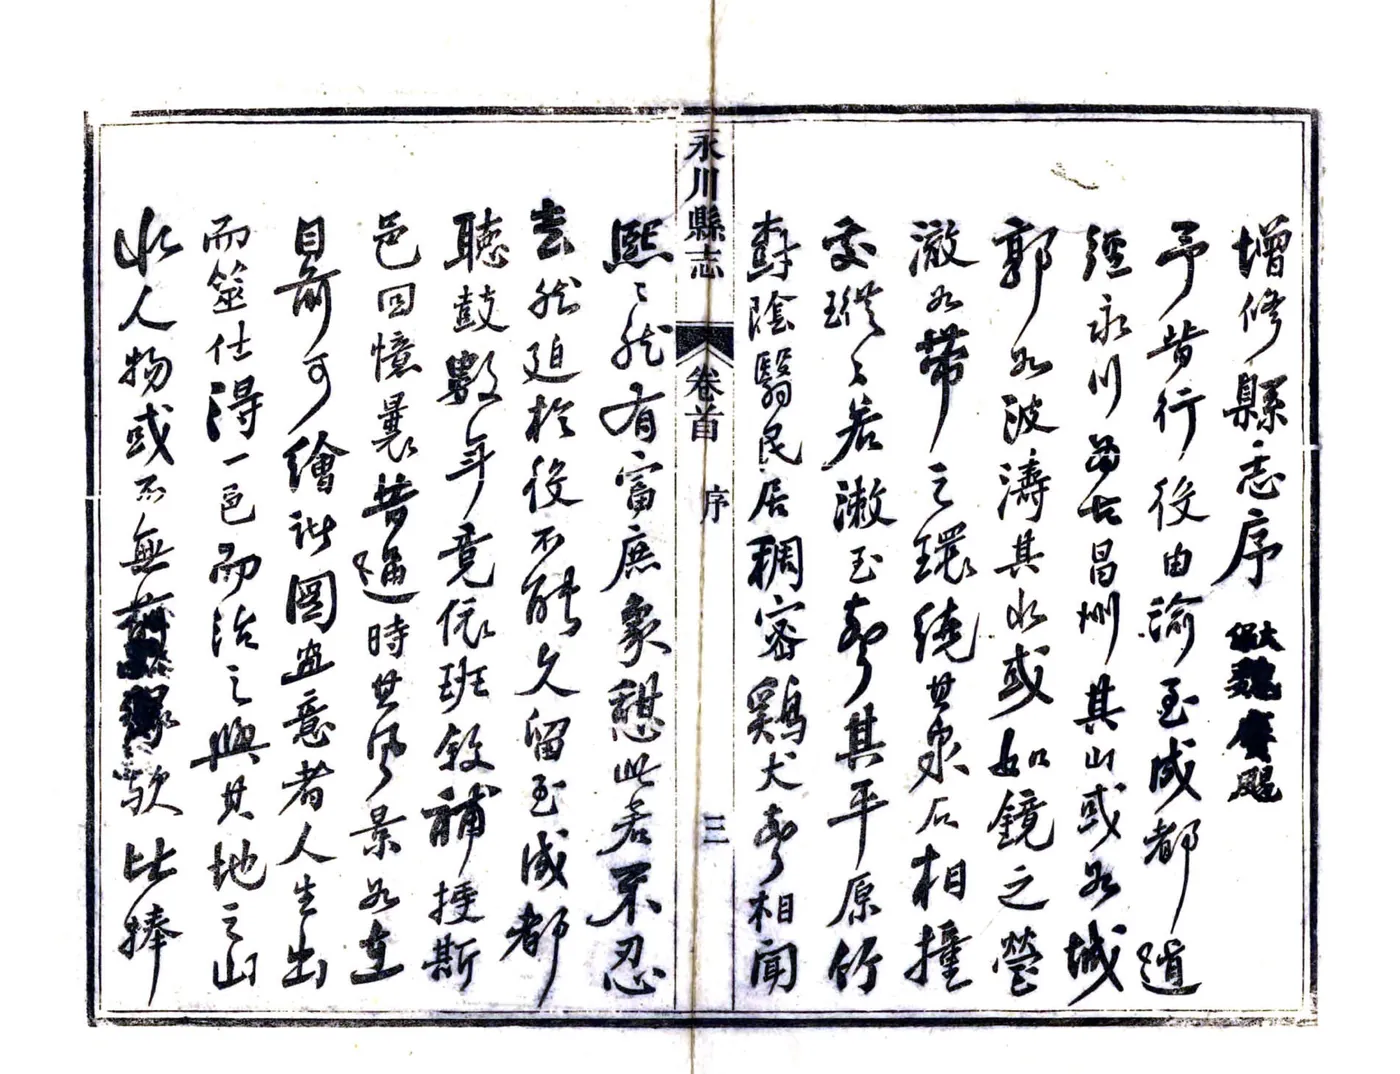 增修縣志序
予昔行役由渝至成都道
經永川為古昌州其山或如城
郭如波濤其水或如鏡之瑩
澈如帶之環繞其泉石相撞
交璁〻若漱玉聲其平原竹
樹陰翳民居稠密鷄犬聲相聞
永川縣志
卷首
序
三
熙〻然有富庶象憩此者不忍
去然迫於役不能久留至成都
聽鼓數年竟依班敘補捶斯
邑回憶曩昔過時其風景如在
目前可繪諸圖畫意者人生出
而筮仕得一邑而治之與其地之山
水人物或不無緣歟比捧